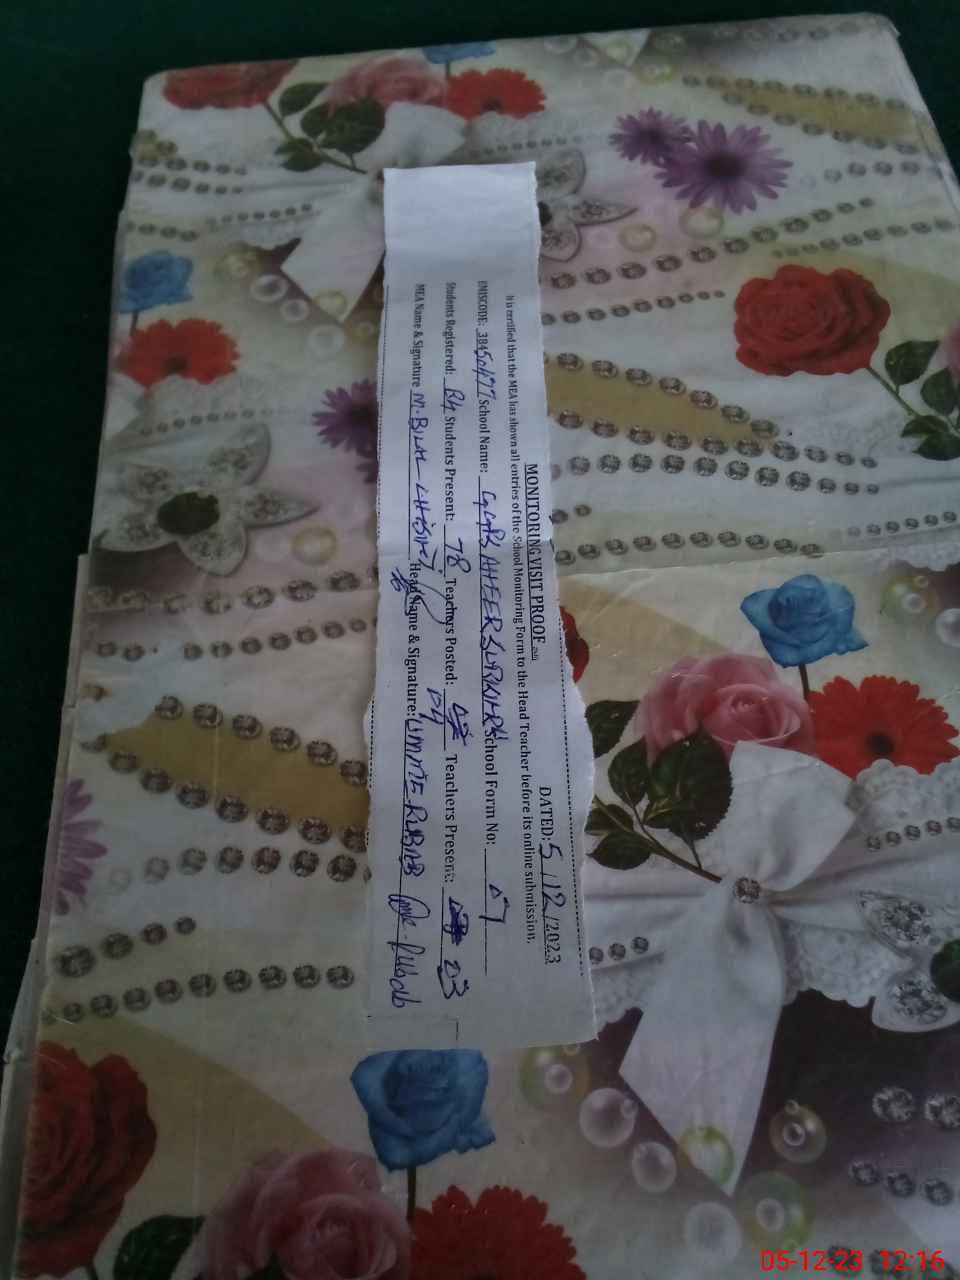 MONITORING VISIT PROOF
DATED: 5/12/2023
It is certified that the MEA has shown all entries of the School Monitoring Form to the Head Teacher before its online submission.
EMISCODE: 38450477 School Name: School Form No: 07
Students Registered: 84 Students Present: 78 Teachers Posted: 04 Teachers Present: 03
MEA Name & Signature M. BILAL CHISHTI Head Name & Signature: UMME RUBAB
05-12-23 12:16